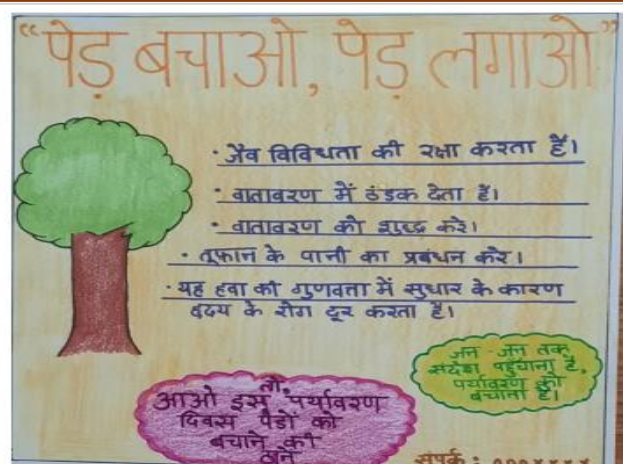 “पेड़ बचाओ, पेड़ लगाओ”
· जैव विविधता की रक्षा करता है।
· वातावरण में ठंडक देता है।
· वातावरण को शुद्ध करे।
· तूफान के पानी का प्रबंधन करे।
· यह हवा की गुणवत्ता में सुधार के कारण
हृदय के रोग दूर करता है।
जन-जन तक
संदेश पहुँचाना है,
पर्यावरण को
बचाना है।
तो,
आओ इस पर्यावरण
दिवस पेड़ों को
बचाने की
ठाने
संपर्क :